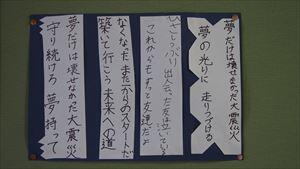 夢だけは壊せなかった大震災
夢の光りに 走りつづける
ひさしぶり 出会った友は泣いている
これからもずっと友達だよ
なくなった またーからのスタートだ
築いて行こう 未来への道
夢だけは壊せなかった大震災
守り続けろ 夢持って